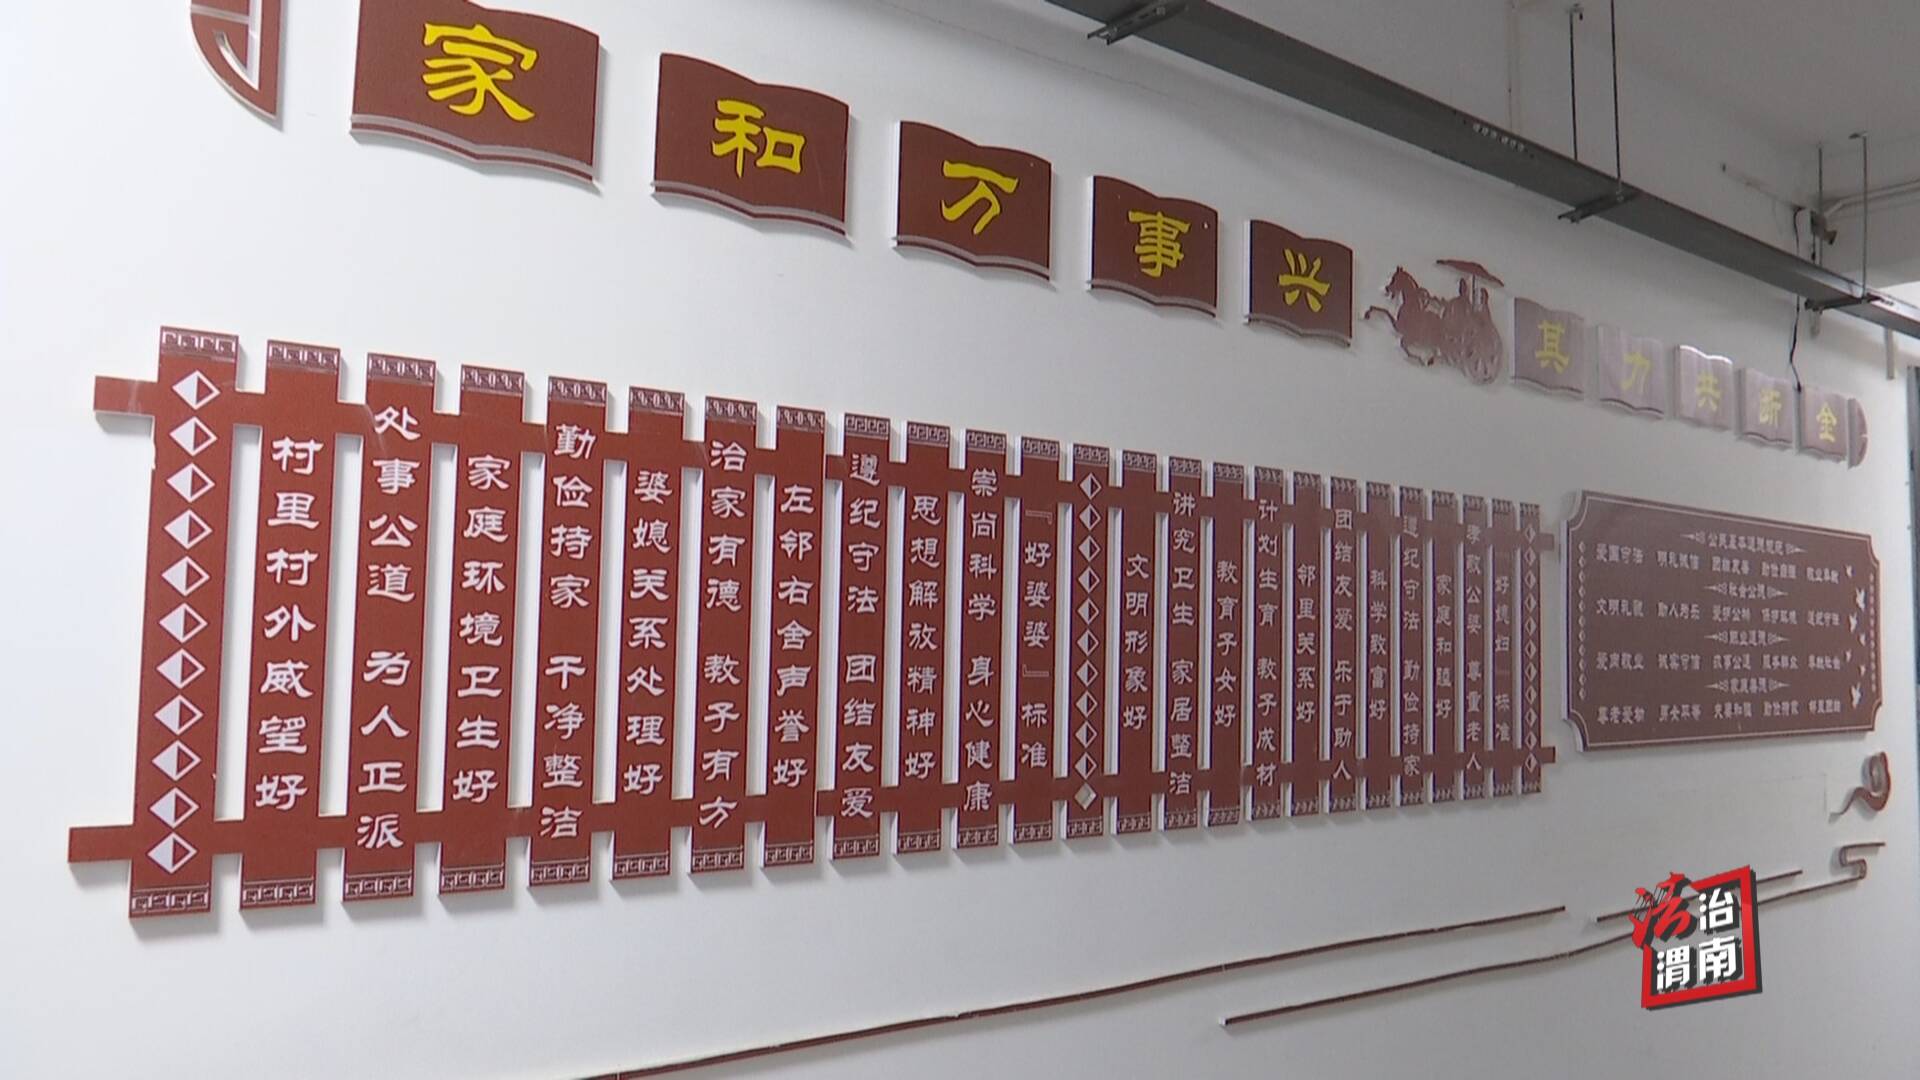 家和万事兴
其力共断金
『好媳妇』标准
孝敬公婆 尊重老人
家庭和睦好
遵纪守法 勤俭持家
科学致富好
团结友爱 乐于助人
邻里关系好
计划生育 教子成材
教育子女好
讲究卫生 家居整洁
文明形象好
『好婆婆』标准
崇尚科学 身心健康
思想解放精神好
遵纪守法 团结友爱
左邻右舍声誉好
治家有德 教子有方
婆媳关系处理好
勤俭持家 干净整洁
家庭环境卫生好
处事公道 为人正派
村里村外威望好
公民基本道德规范
爱国守法 明礼诚信 团结友善 勤俭自强 敬业奉献
社会公德
文明礼貌 助人为乐 爱护公物 保护环境 遵纪守法
职业道德
爱岗敬业 诚实守信 办事公道 服务群众 奉献社会
家庭美德
尊老爱幼 男女平等 夫妻和睦 勤俭持家 邻里团结
法治
渭南